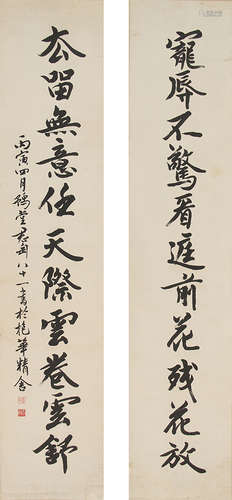 寵辱不驚看庭前花殘花放
去留無意任天際雲卷雲舒
丙寅四月
八十一書於
華精舍